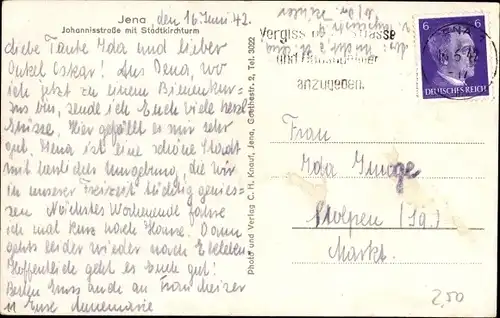 Jena
Johannisstraße mit Stadtkirchturm
den 16. Juni 42.
Liebe Tante Ida und lieber
Onkel Oskar! Aus Jena, wo
ich jetzt zu einem Bienenkur-
sus bin, sende ich Euch viele herzl.
Grüsse. Hier gefällt es mir sehr
gut. Jena ist eine schöne Stadt
mit herrlicher Umgebung, die wir
in unserer Freizeit tüchtig genies-
sen. Nächstes Wochenende fahre
ich mal kurz nach Hause. Dann
gehts leider wieder nach
Hoffentlich geht es Euch gut!
Besten Gruss auch an Frau
u. Eure Annemarie
Photo und Verlag C. H. Knauf, Jena, Goethestr. 2, Tel. 3022
Vergiss Strasse
und
anzugeben.
JENA
6 6
DEUTSCHES REICH
Frau
Ida
Stolpen (Sa.)
Markt.
2,50